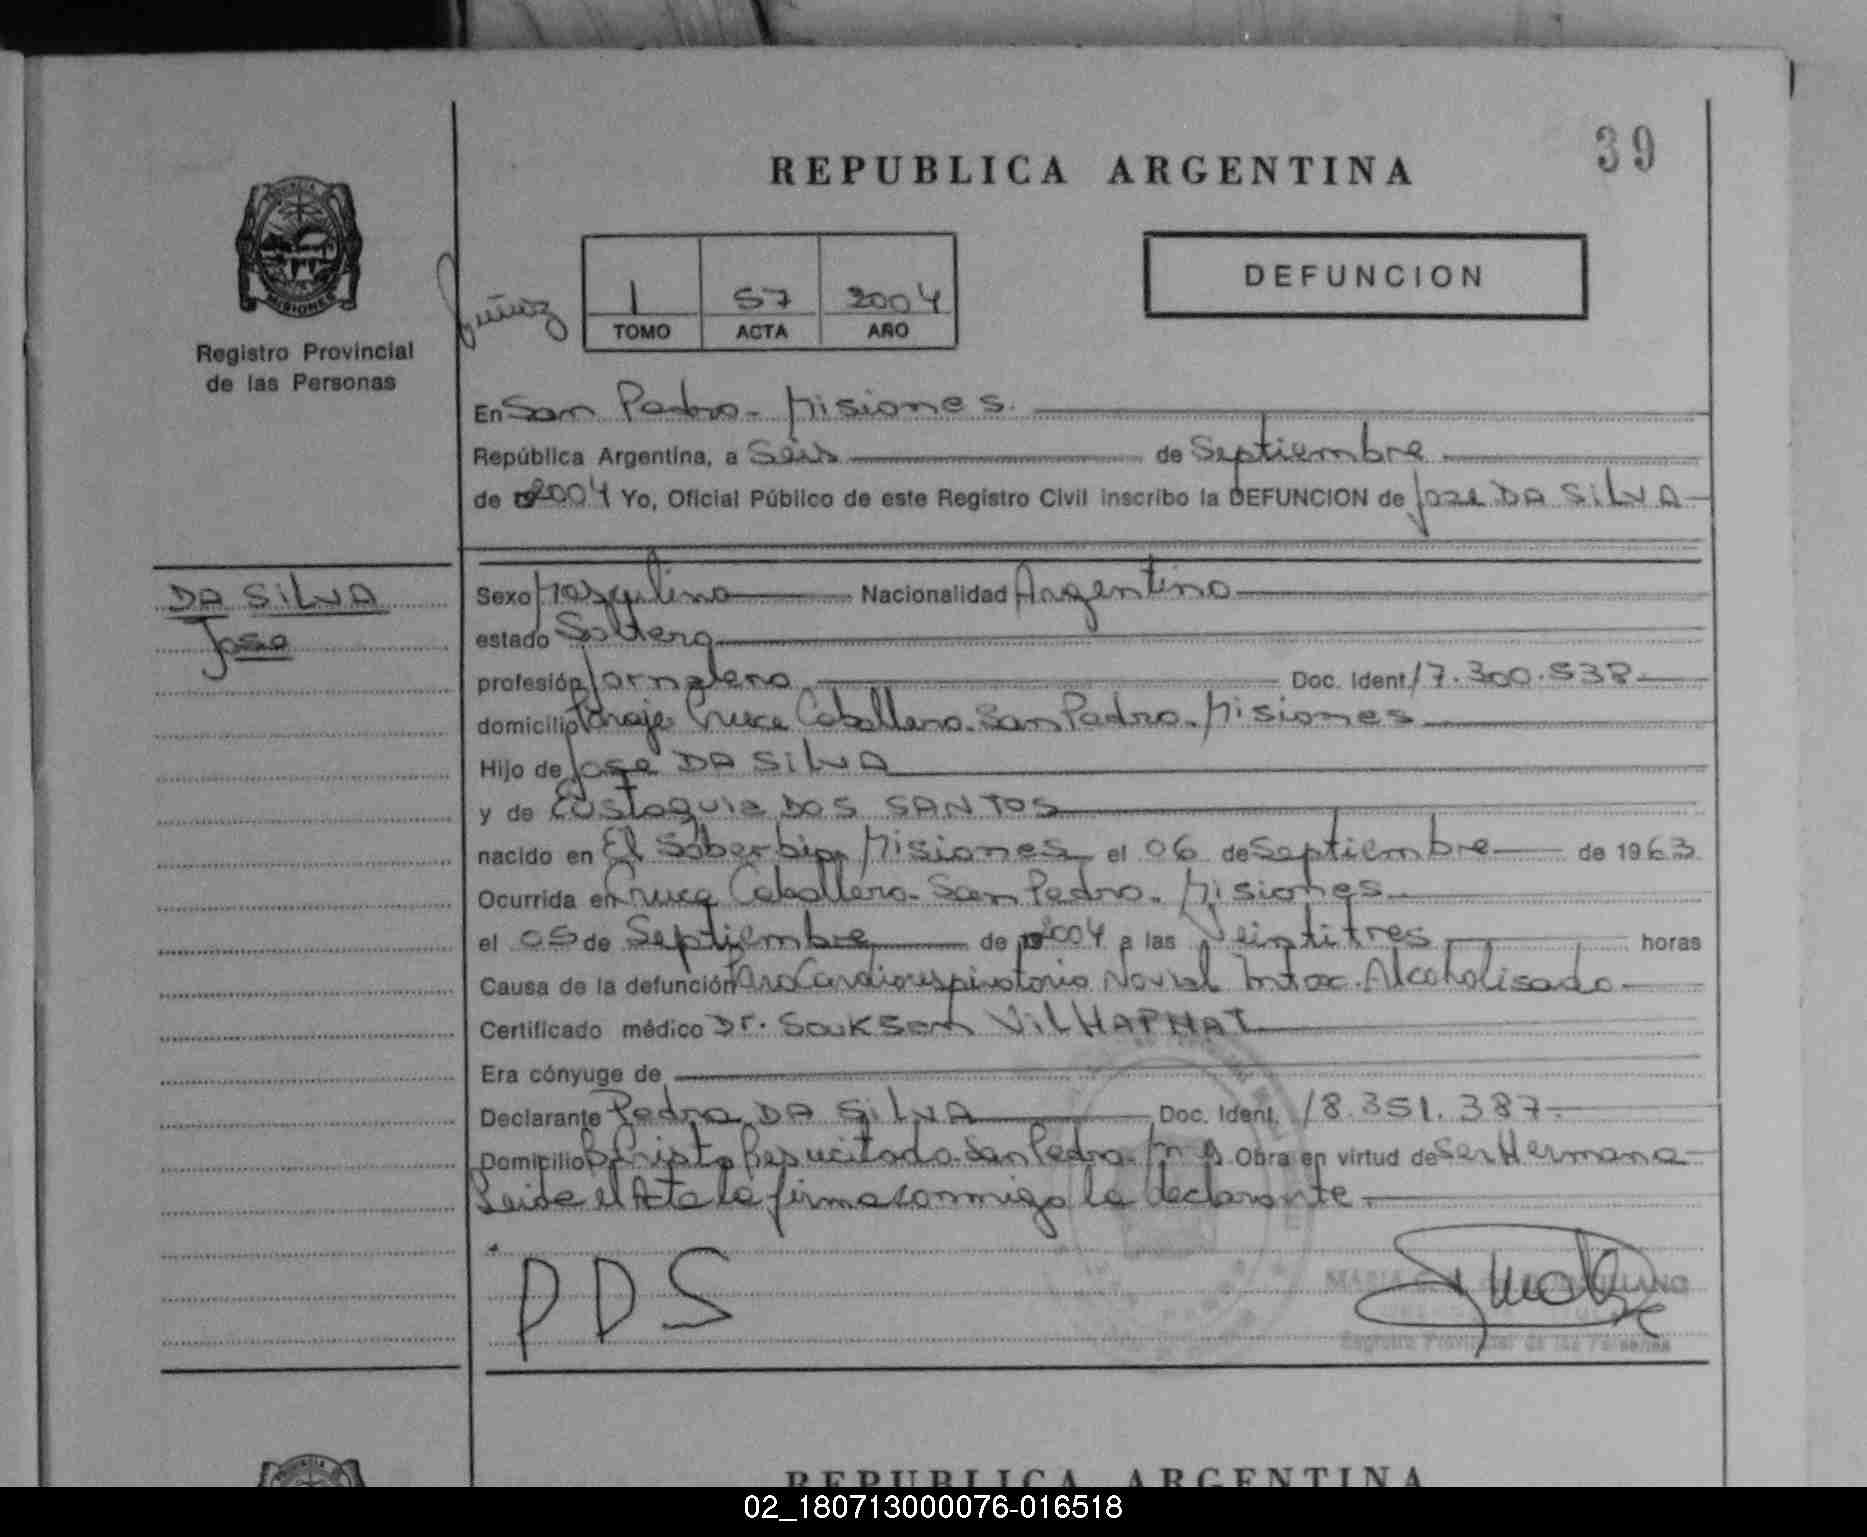 39
REPUBLICA ARGENTINA
DEFUNCION
PROVINCIA
MISIONES
Registro Provincial
de las Personas
1 57 2004
TOMO ACTA AÑO
En San Pedro - Misiones.
República Argentina, a Seis de Septiembre
de 2004 Yo, Oficial Público de este Registro Civil inscribo la DEFUNCION de Jose DA SILVA
DA SILVA
Jose
Sexo Masculino Nacionalidad Argentino
estado Soltero
profesión Jornalero Doc. Ident. 17.300.538
domicilio Paraje Cruce Caballero - San Pedro - Misiones
Hijo de Jose DA SILVA
y de Eustaquia DOS SANTOS
nacido en El Soberbio Misiones el 06 de Septiembre de 1963
Ocurrida en Cruce Caballero - San Pedro - Misiones
el 05 de Septiembre de 2004 a las Veintitres horas
Causa de la defunción Cardiorespiratorio Intox. Alcoholisado
Certificado médico Dr. Souksom VILHAPHAT
Era cónyuge de
Declarante Pedro DA SILVA Doc. Ident. 18.351.387
Domicilio Bº Cristo Resucitado San Pedro - Mnes Obra en virtud de Ser Hermano
Leida el Acta la firma conmigo la declarante
PDS
Registro Provincial de las Personas
PROVINCIA
REPUBLICA ARGENTINA
02_180713000076-016518